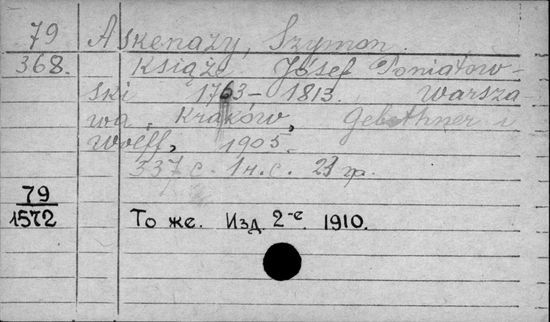 79 Askenazy, Szymon.
368. Książe Józef Poniatow-
ski 1763–1813. Warsza
wa, Kraków, Gebethner i
Wolff, 1905.
337 с. 1 н.с. 21 гр.
79
1572 То же. Изд. 2-е. 1910.